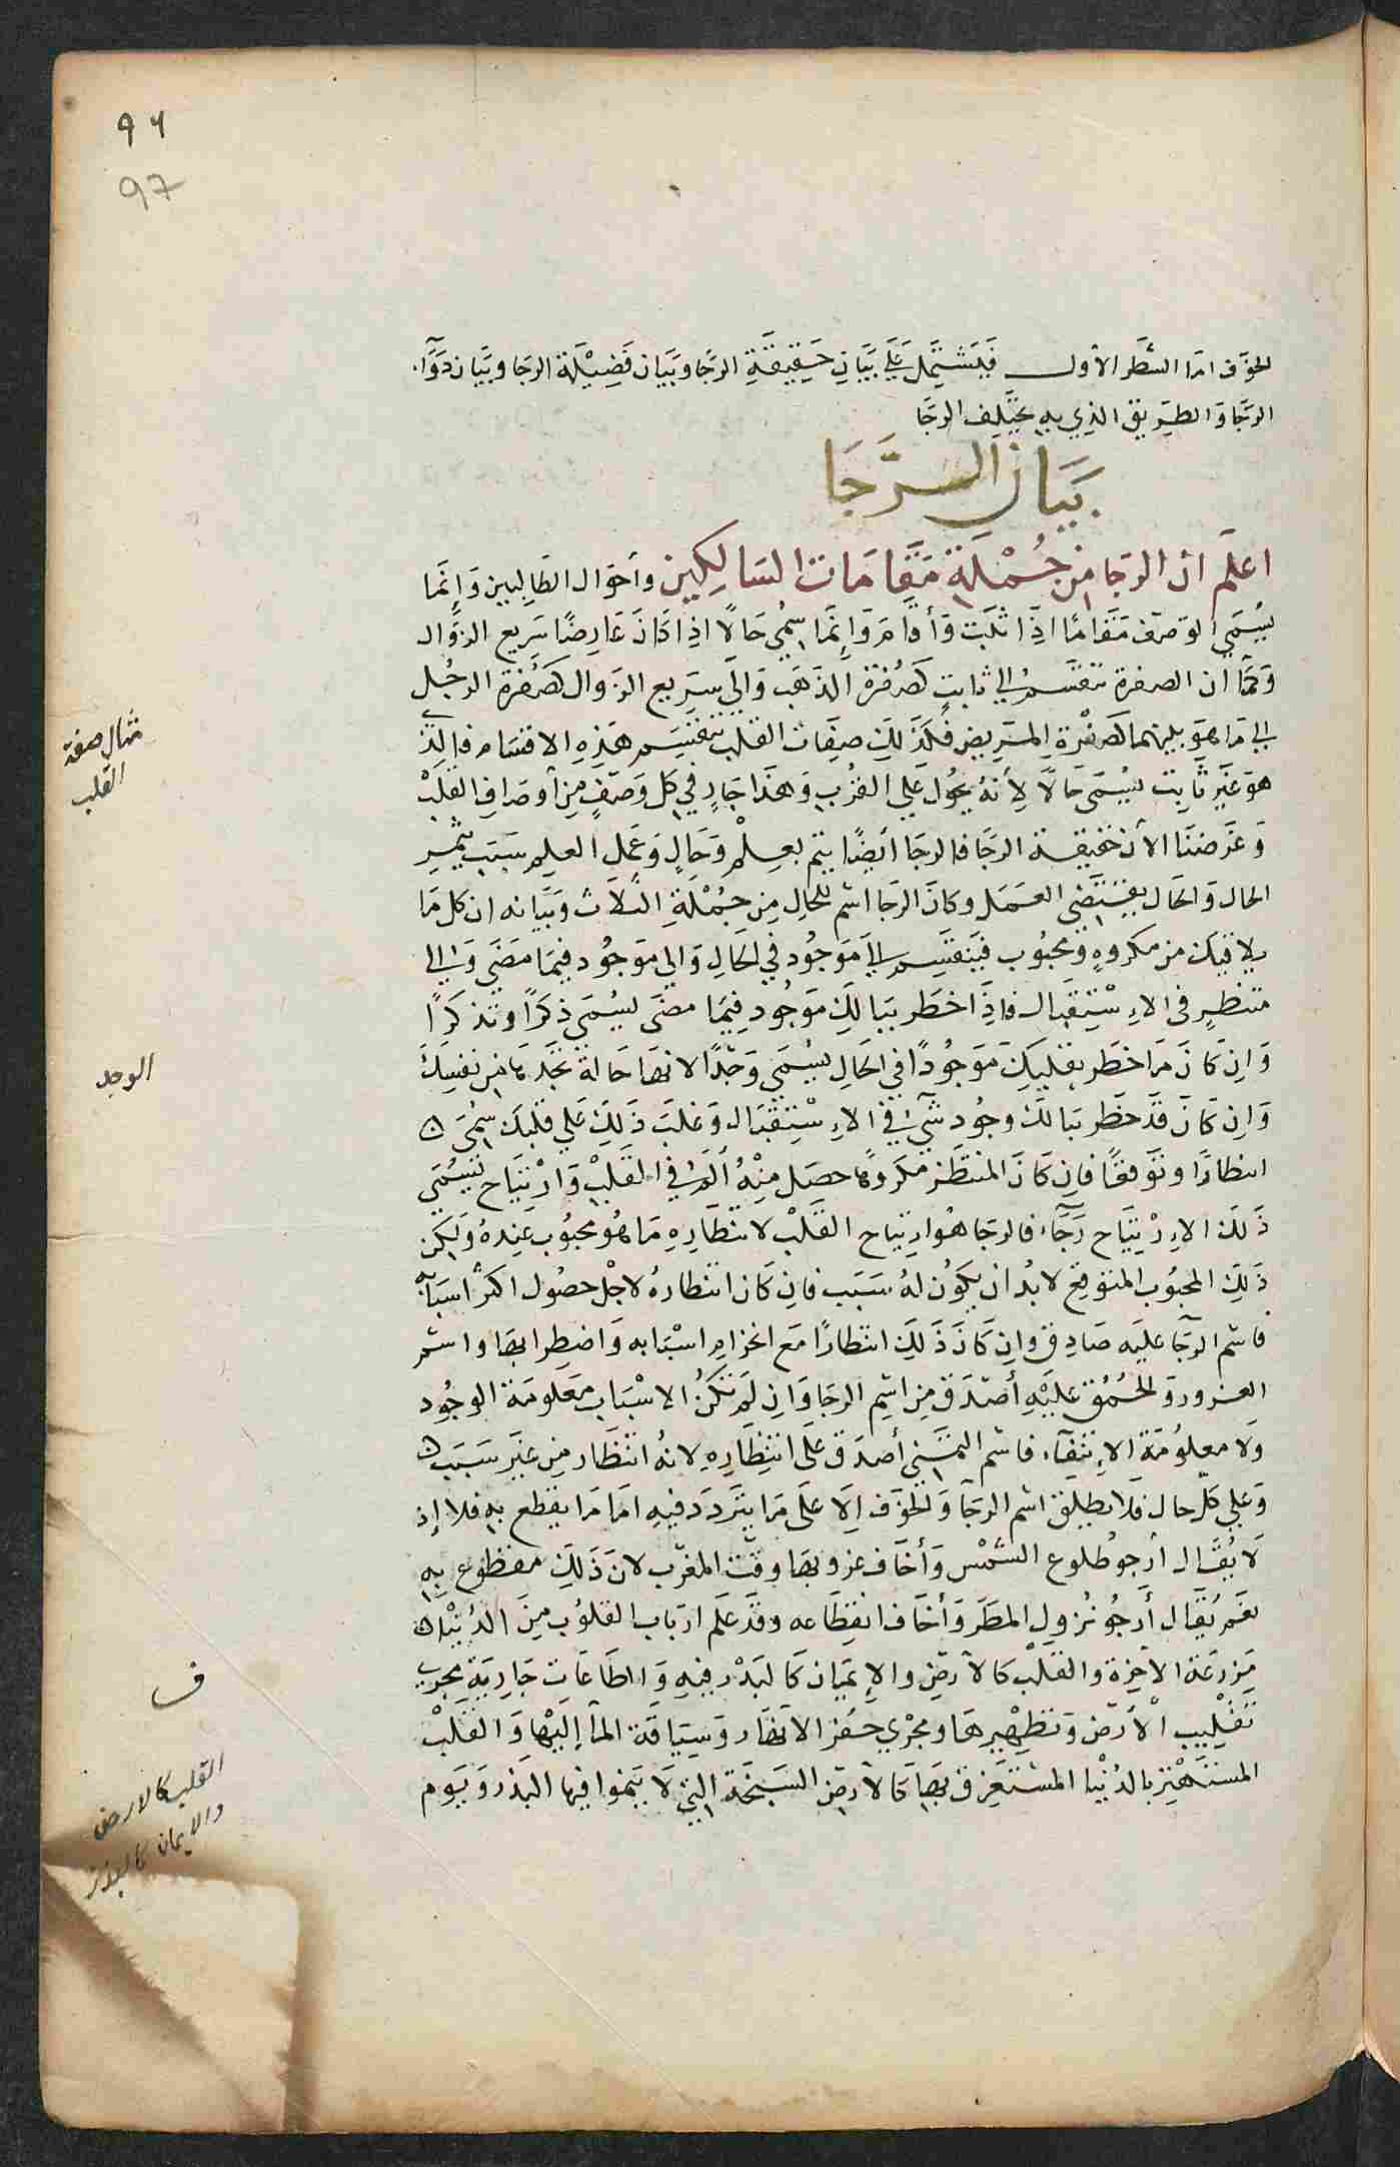 ٩٦
97
الخوف اما الشطر الأول فيشتمل على بيان حقيقة الرجا وبيان فضيلة الرجا وبيان دوآ
الرجا والطريق الذي به يجتلف الرجا
بيان الرجا
اعلم ان الرجا من جملة مقامات السالكين وأحوال الطالبين وإنما
يسمي الوصف مقامًا اذا ثبت وأقام وإنما سمي حالًا اذا كان عارضًا سريع الزوال
وكما ان الصفرة تنقسم الي ثابت كصفرة الذهب والي سريع الزوال كصفرة الوجل
الي ما هو بينهما كصفرة المريض فكذلك صفات القلب تنقسم هذه الاقسام فالذي
هو غير ثابت يسمى حالًا لأنه يحول علي القرب وهذا جارٍ في كل وصفٍ من أوصاف القلب
وغرضنا الأن حقيقة الرجا فالرجا أيضًا يتم بعلم وحالٍ وعمل العلم سبب يثمر
الحال والحال يقتضي العمل وكان الرجا اسم للحال من جملة الثلاث وبيانه ان كل ما
يلاقيك من مكروهٍ ومحبوب فينقسم الي موجود في الحال والي موجود فيما مضى والي
منتظرٍ في الاستقبال فاذا خطر ببالك موجود فيما مضى يسمى ذكرًا وتذكرًا
وان كان ما خطر بقلبك موجودًا في الحال يسمي وجدًا لانها حالة تجدها من نفسك
وان كان قد خطر ببالك وجود شيء في الاستقبال وغلب ذلك علي قلبك سمى
انتظارًا وتوقعًا فان كان المنتظر مكروها حصل منه ألم في القلب وارتياح يسمى
ذلك الارتياح رجآء فالرجا هو ارتياح القلب لانتظاره ما هو محبوب عنده ولكن
ذلك المحبوب المتوقع لا بد ان يكون له سبب فان كان انتظاره لاجل حصول اكثر اسبابه
فاسم الرجا عليه صادق وان كان ذلك انتظارًا مع انخرام اسبابه واضطرابها واسم
الغرور والحمق عليه أصدق من اسم الرجا وان لم تكن الاسباب معلومة الوجود
ولا معلومة الانتفآء فاسم التمني أصدق على انتظاره لانه انتظار من غير سبب
وعلي كل حال فلا يطلق اسم الرجا والخوف إلا على ما يتردد فيه اما ما يقطع به فلا إذ
لا يقال أرجو طلوع الشمس وأخاف غروبها وقت المغرب لان ذلك مقطوع به
نعم يقال أرجو نزول المطر وأخاف انقطاعه وقد علم ارباب القلوب من الدنيا
مزرعة الآخرة والقلب كالأرض والإيمان كالبذر فيه والطاعات جارية مجرى
تقليب الأرض وتطهيرها ومجرى حفر الانهار وسياقة المآ إليها والقلب
المستهتر بالدنيا المستغرق بها كالأرض السبخة التي لا ينموا فيها البذر ويوم
مثال صفة
القلب
الوجد
ف
القلب كالارض
والايمان كالبذر